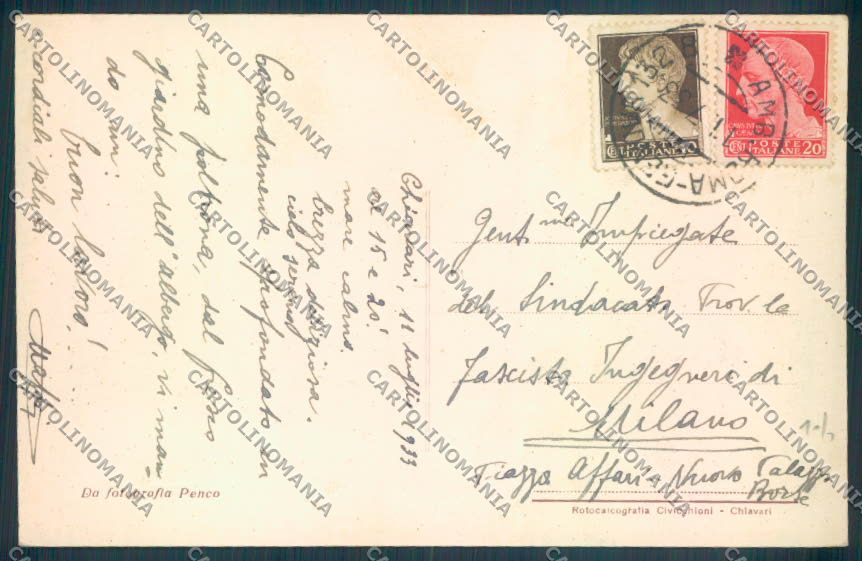 Chiavari, 11 luglio 1933
al 15 e 20!
mare calmo.
brezza deliziosa.
cielo sereno
Comodamente sprofondato in
una poltrona, dal fresco
giardino dell'albergo, vi man
do i miei
buon lavoro!
cordiali saluti
Da fotografia Penco
POSTE
ITALIANE 10
POSTE
ITALIANE 20
CENT
ROMA
Gent.me Impiegate
del Sindacato Prov.le
Fascista Ingegneri di
Milano
Piazza Affari - Nuovo Palazzo
Borse
Rotocalcografia Civicchioni - Chiavari
CARTOLINOMANIA